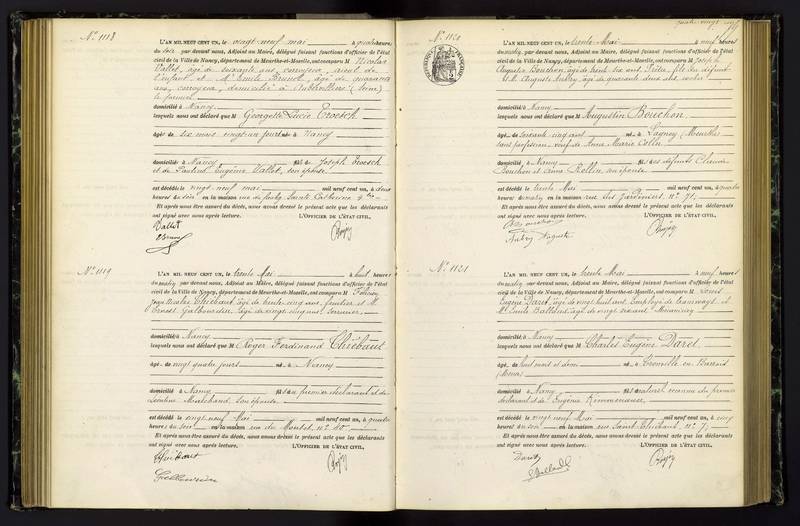 N° 1118
L'AN MIL NEUF CENT UN, le vingt neuf mai à quatre heures
du soir par devant nous, Adjoint au Maire, délégué faisant fonctions d'officier de l'état
civil de la Ville de Nancy, département de Meurthe-et-Moselle, ont comparu M Nicolas
Vallet, âgé de soixante ans, corroyeur, aïeul de
l'enfant et M. Emile âgé de quarante
ans, corroyeur, domicilié à Aubervilliers (Seine)
le premier
domicilié à Nancy
lesquels nous ont déclaré que M Georgette Lucie Troesch
âgé de six mois vingt un jours né à Nancy
domicilié à Nancy fils de Joseph Troesch
et de Pauline Eugénie Vallet, son épouse
est décédé le vingt neuf mai mil neuf cent un, à deux
heures du soir en la maison rue du faubg Sainte Catherine
Et après nous être assuré du décès, nous avons dressé le présent acte que les déclarants
ont signé avec nous après lecture. L'OFFICIER DE L'ÉTAT CIVIL,
Vallet
N° 1119
L'AN MIL NEUF CENT UN, le trente Mai à huit heures
du matin par devant nous, Adjoint au Maire, délégué faisant fonctions d'officier de l'état
civil de la Ville de Nancy, département de Meurthe-et-Moselle, ont comparu M
Jean Nicolas Thiébaut, âgé de trente cinq ans, et M.
Ernest âgé de vingt cinq ans, serrurier
domicilié à Nancy
lesquels nous ont déclaré que M Roger Ferdinand Thiébaut
âgé de neuf quatre jours né à Nancy
domicilié à Nancy fils du premier déclarant et de
Marchand, son épouse
est décédé le vingt neuf Mai mil neuf cent un, à quatre
heures du soir en la maison rue du Montet, n° 40
Et après nous être assuré du décès, nous avons dressé le présent acte que les déclarants
ont signé avec nous après lecture. L'OFFICIER DE L'ÉTAT CIVIL,
Thiébaut
quatre vingt neuf
N° 1120
L'AN MIL NEUF CENT UN, le trente Mai à neuf heures
du matin par devant nous, Adjoint au Maire, délégué faisant fonctions d'officier de l'état
civil de la Ville de Nancy, département de Meurthe-et-Moselle, ont comparu M Joseph
Augustin Bouchon, âgé de trente six ans, fils du défunt
et M. Auguste Aubry âgé de quarante deux ans, cocher
domicilié à Nancy
lesquels nous ont déclaré que M Augustin Bouchon
âgé de soixante cinq ans né à Lagney (Meurthe)
sans profession, veuf de Anne Marie Collin
domicilié à Nancy fils des défunts Claude
Bouchon et Anne Rollin son épouse
est décédé le trente Mai mil neuf cent un, à quatre
heures du matin en la maison rue des Jardiniers, n° 71
Et après nous être assuré du décès, nous avons dressé le présent acte que les déclarants
ont signé avec nous après lecture. L'OFFICIER DE L'ÉTAT CIVIL,
Aubry Auguste
N° 1121
L'AN MIL NEUF CENT UN, le trente Mai à neuf heures
du matin par devant nous, Adjoint au Maire, délégué faisant fonctions d'officier de l'état
civil de la Ville de Nancy, département de Meurthe-et-Moselle, ont comparu M Louis
Eugène Daret, âgé de vingt huit ans, Employé de tramways et
M. Emile âgé de vingt
domicilié à Nancy
lesquels nous ont déclaré que M Charles Eugène Daret
âgé de huit mois et demi né à Tronville en Barrois
(Meuse)
domicilié à Nancy fils naturel reconnu du premier
déclarant et de Eugénie
est décédé le vingt neuf Mai mil neuf cent un, à cinq
heures du soir en la maison rue Saint Thiébaut, n° 7
Et après nous être assuré du décès, nous avons dressé le présent acte que les déclarants
ont signé avec nous après lecture. L'OFFICIER DE L'ÉTAT CIVIL,
Daret